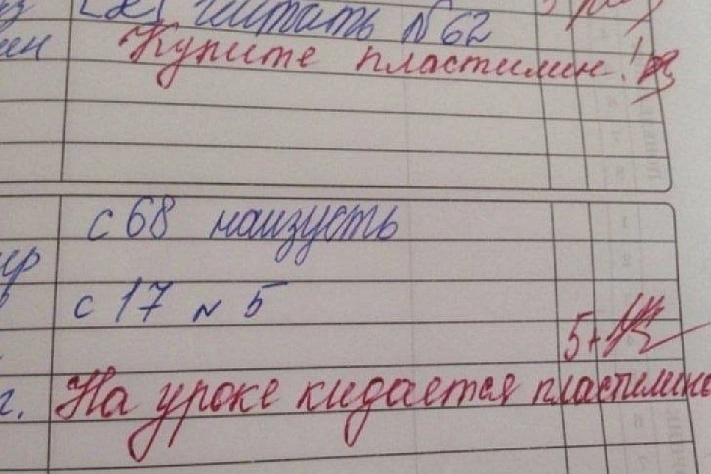 [2] читать №62
Купите пластилин!
с 68 наизусть
с 17 № 5
5+
г. На уроке кидается пластилино